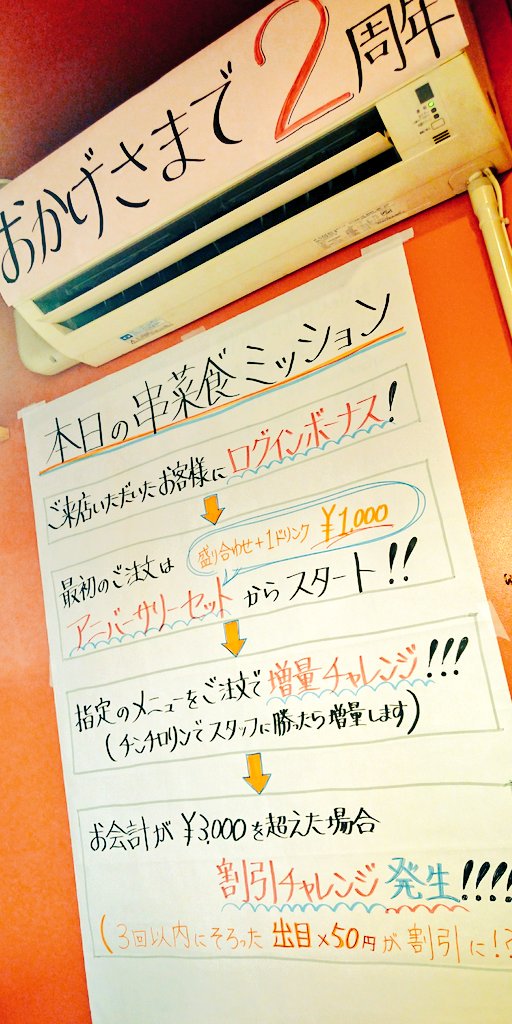 おかげさまで2周年
本日の串菜食ミッション
ご来店いただいたお客様にログインボーナス!
盛り合わせ+1ドリンク ¥1,000
最初のご注文は
アニバーサリーセットからスタート!!
指定のメニューをご注文で増量チャレンジ!!!
(チンチロリンでスタッフに勝ったら増量します)
お会計が¥3,000を超えた場合
割引チャレンジ発生!!!!
(3回以内にそろった出目×50円が割引に!?